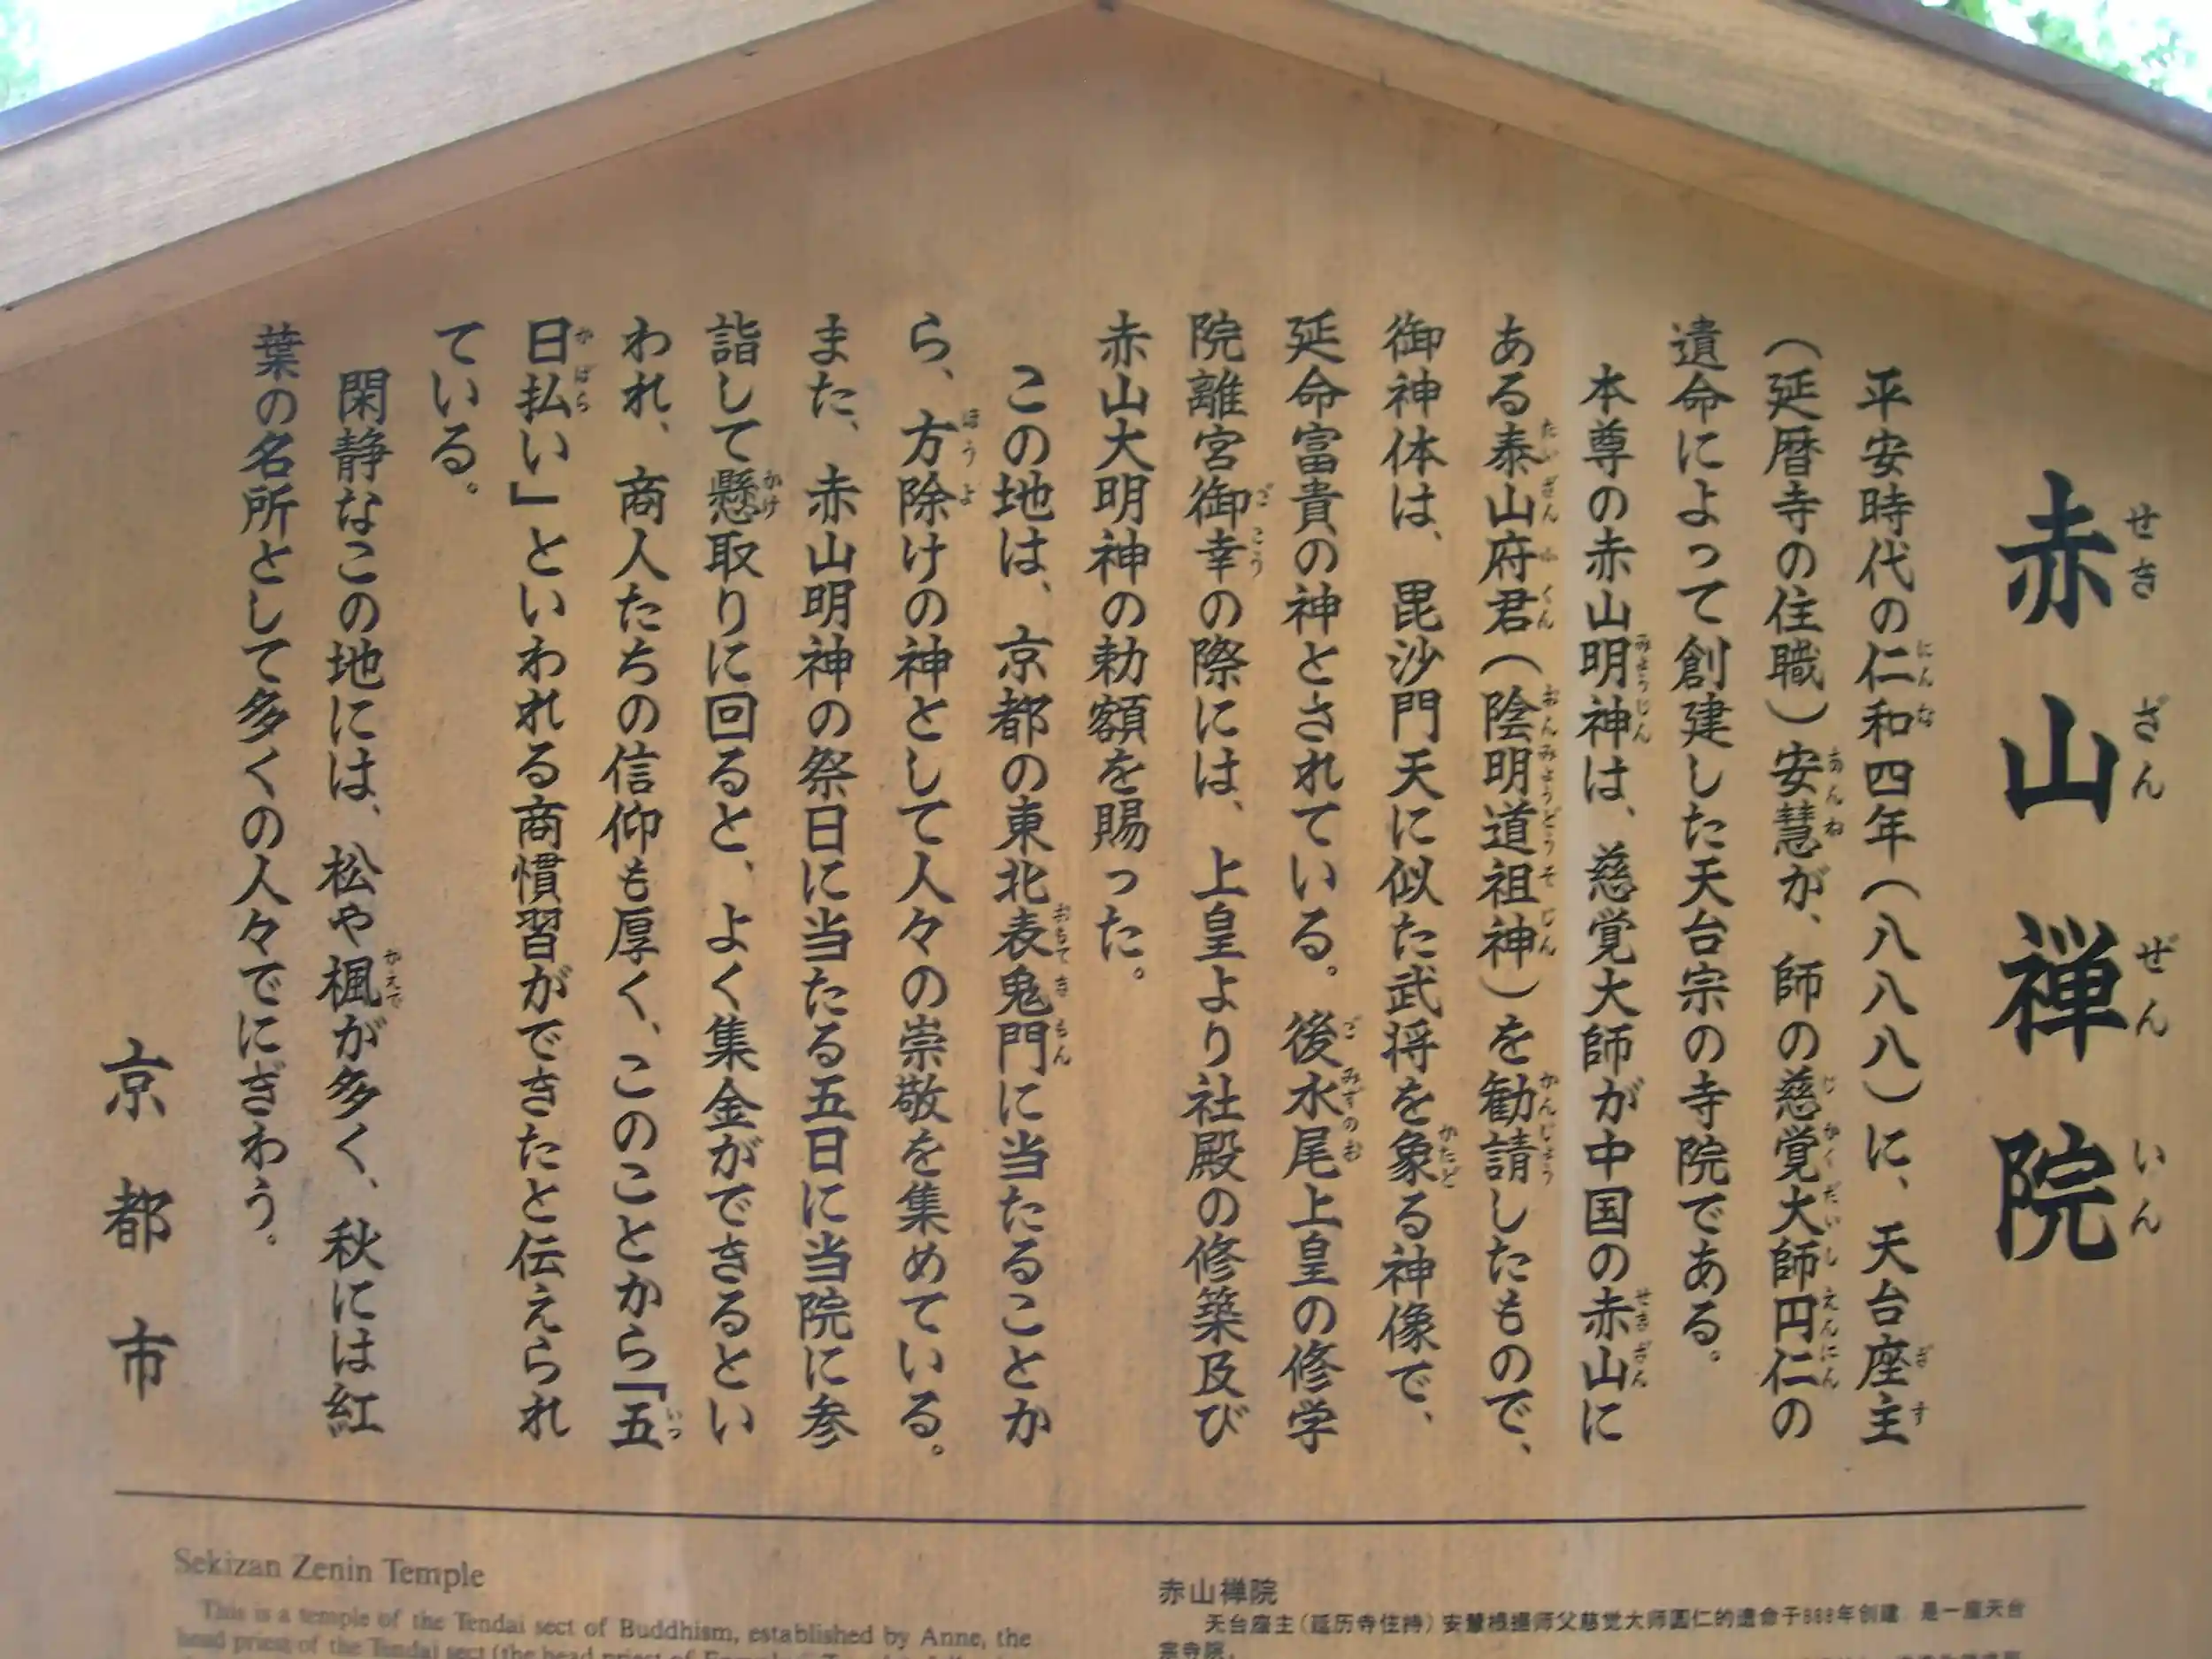 赤山禅院
せきざんぜんいん
平安時代の仁和四年（八八八）に、天台座主
（延暦寺の住職）安慧が、師の慈覚大師円仁の
遺命によって創建した天台宗の寺院である。
本尊の赤山明神は、慈覚大師が中国の赤山に
ある泰山府君（陰明道祖神）を勧請したもので、
御神体は、毘沙門天に似た武将を象る神像で、
延命富貴の神とされている。後水尾上皇の修学
院離宮御幸の際には、上皇より社殿の修築及び
赤山大明神の勅額を賜った。
この地は、京都の東北表鬼門に当たることか
ら、方除けの神として人々の崇敬を集めている。
また、赤山明神の祭日に当たる五日に当院に参
詣して懸取りに回ると、よく集金ができるとい
われ、商人たちの信仰も厚く、このことから「五
日払い」といわれる商慣習ができたと伝えられ
ている。
閑静なこの地には、松や楓が多く、秋には紅
葉の名所として多くの人々でにぎわう。
京都市
Sekizan Zenin Temple
This is a temple of the Tendai sect of Buddhism, established by Anne, the
head priest of the Tendai sect (the head priest of
赤山禅院
天台座主（延历寺住持）安慧根据师父慈觉大师圆仁的遗命于888年创建，是一座天台
宗寺院。